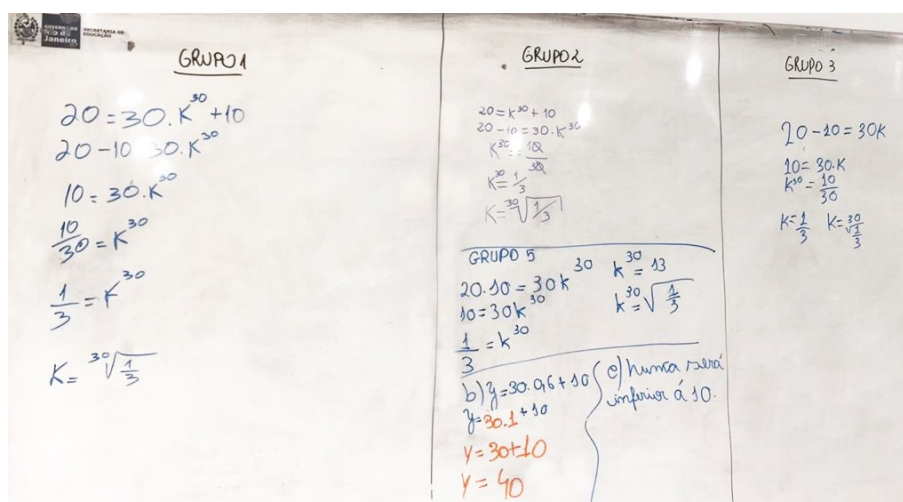 GOVERNO DO
Rio de
Janeiro
SECRETARIA DE
EDUCAÇÃO
GRUPO 1
20 = 30 . K^30 + 10
20 - 10 30 . K^30
10 = 30 . K^30
10/30 = K^30
1/3 = K^30
K = ³⁰√(1/3)
GRUPO 2
20 = K^30 + 10
20 - 10 = 30 . K^30
K^30 = 10/30
K^30 = 1/3
K = ³⁰√(1/3)
GRUPO 5
20.10 = 30k^30
10 = 30k^30
1/3 = k^30
k^30 = 13
k^30 = √(1/3)
b) y = 30. 0,6 + 10
y = 30.1 + 10
y = 30 + 10
y = 40
c) Nunca será
inferior á 10.
GRUPO 3
20 - 10 = 30K
10 = 30 . K
K^30 = 10/30
K = 1/3 K = 30/√(1/3)